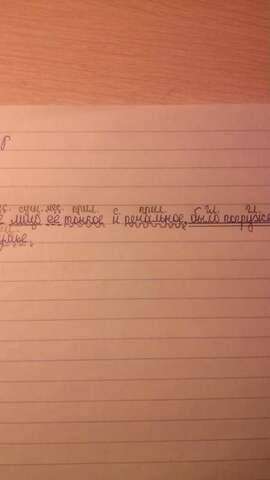 сущ. мес. прил. с. прил. гл. гл.
лицо её тонкое и печальное, было погруже